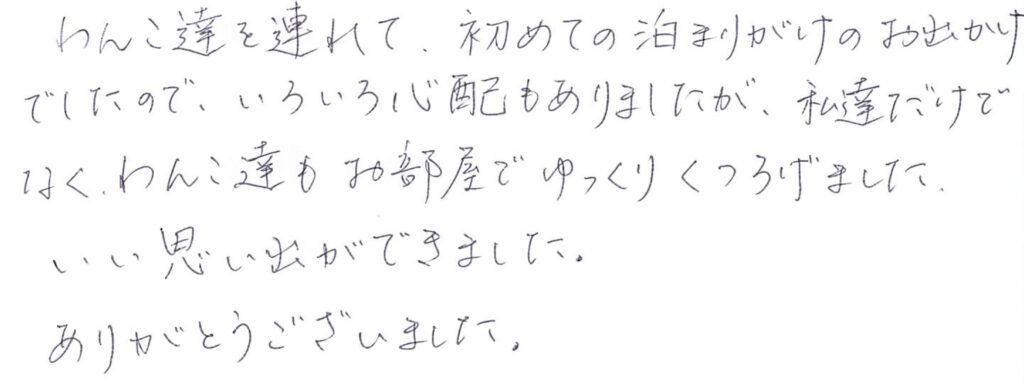 わんこ達を連れて、初めての泊まりがけのお出かけ
でしたので、いろいろ心配もありましたが、私達だけで
なく、わんこ達もお部屋でゆっくりくつろげました。
いい思い出ができました。
ありがとうございました。